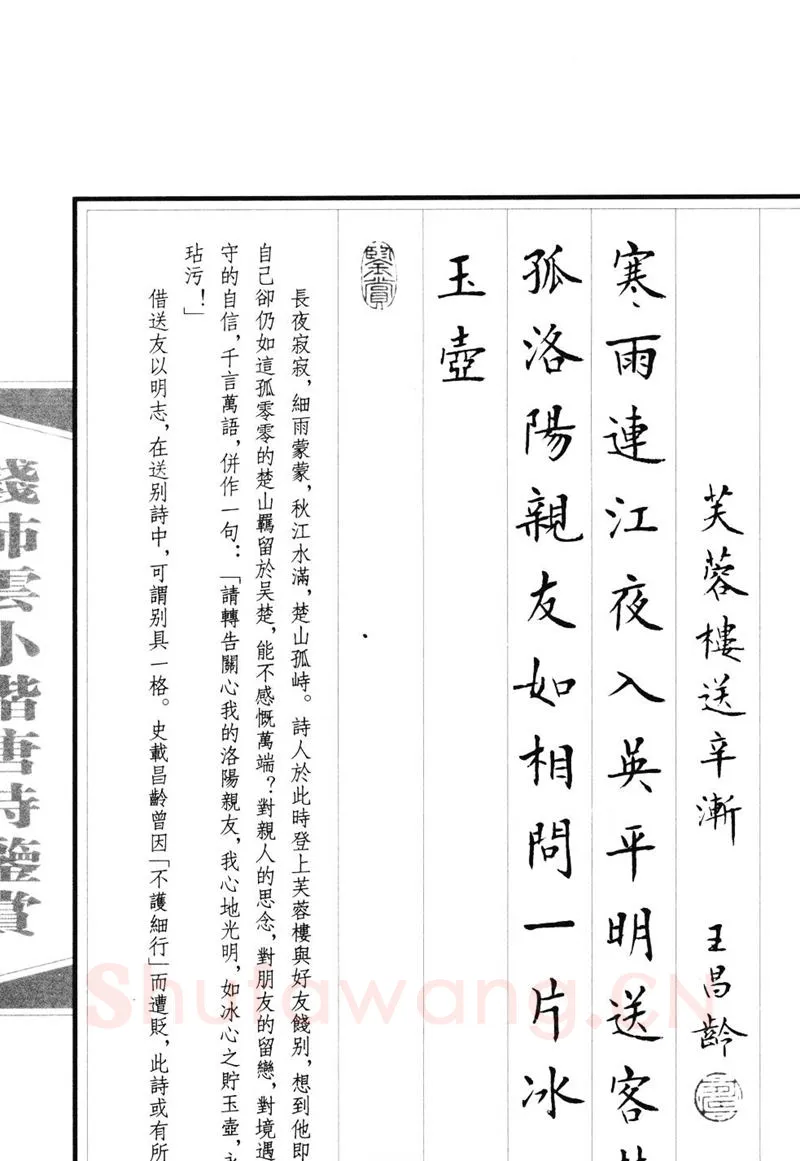 芙蓉樓送辛漸 王昌齡
寒雨連江夜入吳平明送客
孤洛陽親友如相問一片冰
玉壺
鑒賞
長夜寂寂，細雨蒙蒙，秋江水滿，楚山孤峙。詩人於此時登上芙蓉樓與好友餞别，想到他即
自己卻仍如這孤零零的楚山羈留於吴楚，能不感慨萬端？對親人的思念，對朋友的留戀，對境遇
守的自信，千言萬語，併作一句：「請轉告關心我的洛陽親友，我心地光明，如冰心之貯玉壺，永
玷污！」
借送友以明志，在送别詩中，可謂别具一格。史載昌齡曾因「不護細行」而遭貶，此詩或有所
錢沛雲小楷唐詩鑒賞
Shufawang.CN